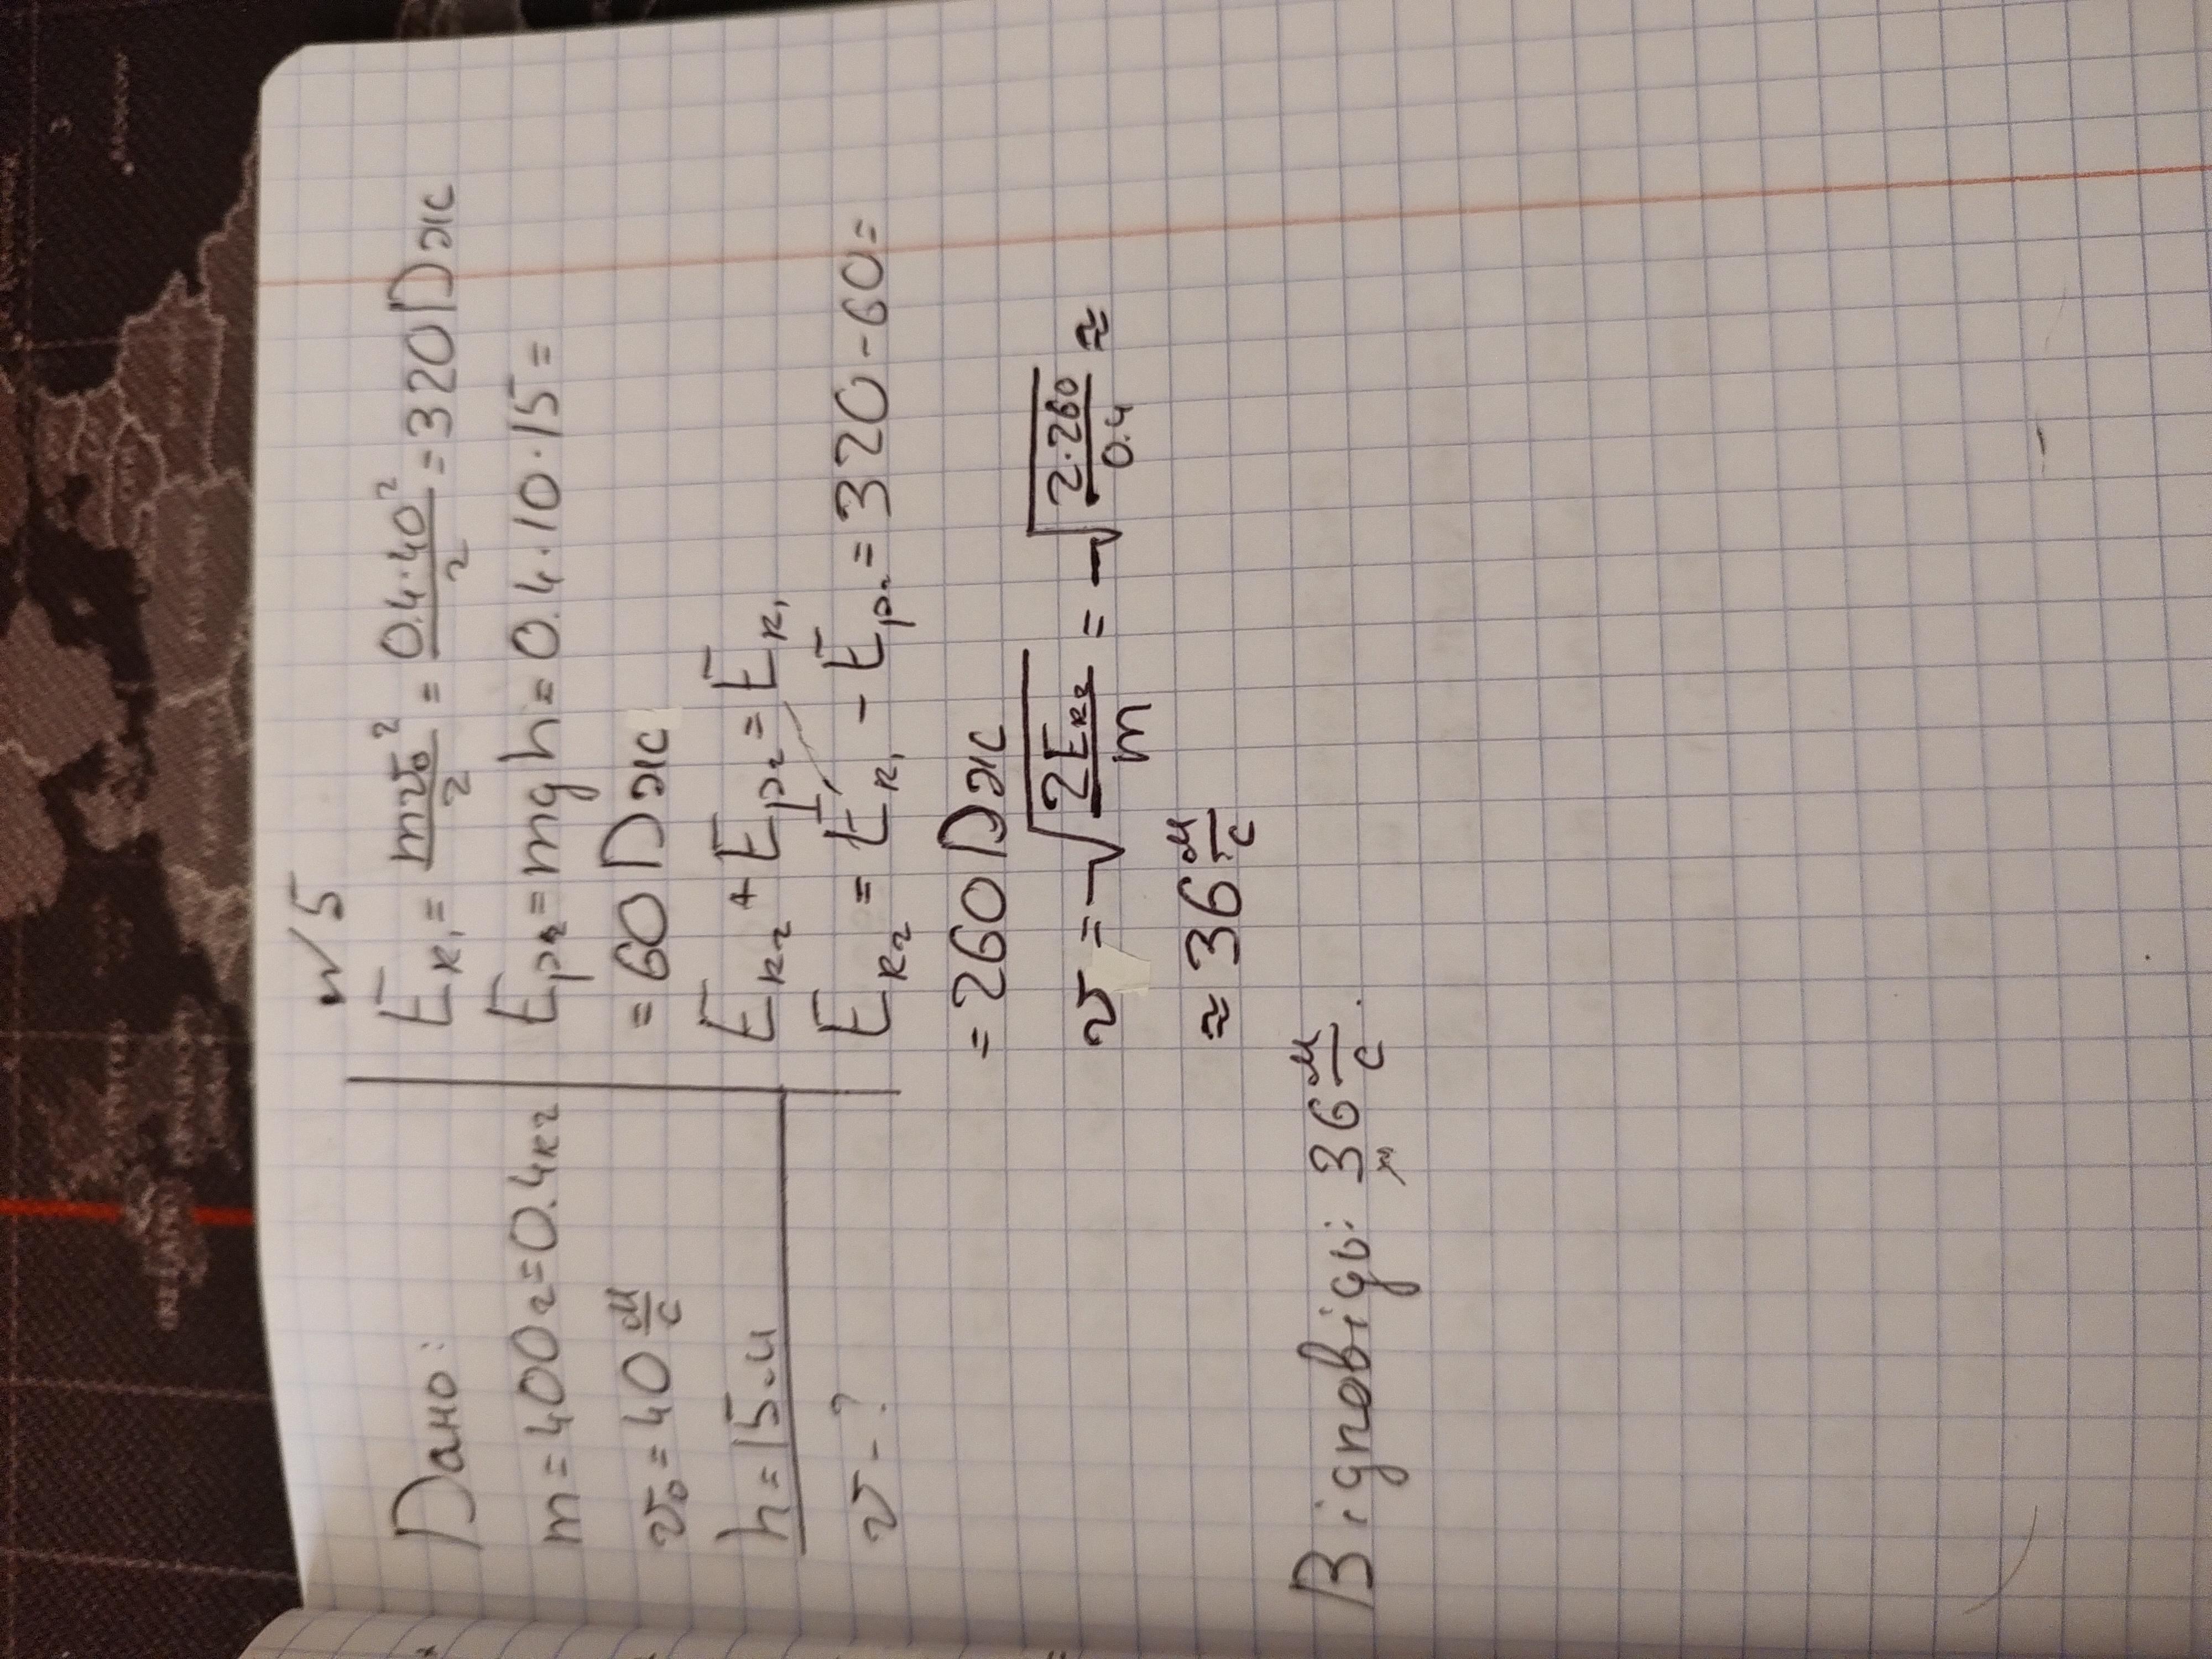 №5
Дано:
m=400г=0.4кг
v₀=40 м/с
h=15м
v-?
Eк₁ = mv₀²/2 = 0.4·40²/2 = 320Дж
Eр₂=mgh=0.4·10·15=
=60Дж
Eк₂+Eр₂=Eк₁
Eк₂=Eк₁-Eр₂=320-60=
=260Дж
v=√(2Eк₂/m)=√(2·260/0.4)≈
≈36 м/с
Відповідь: 36 м/с.